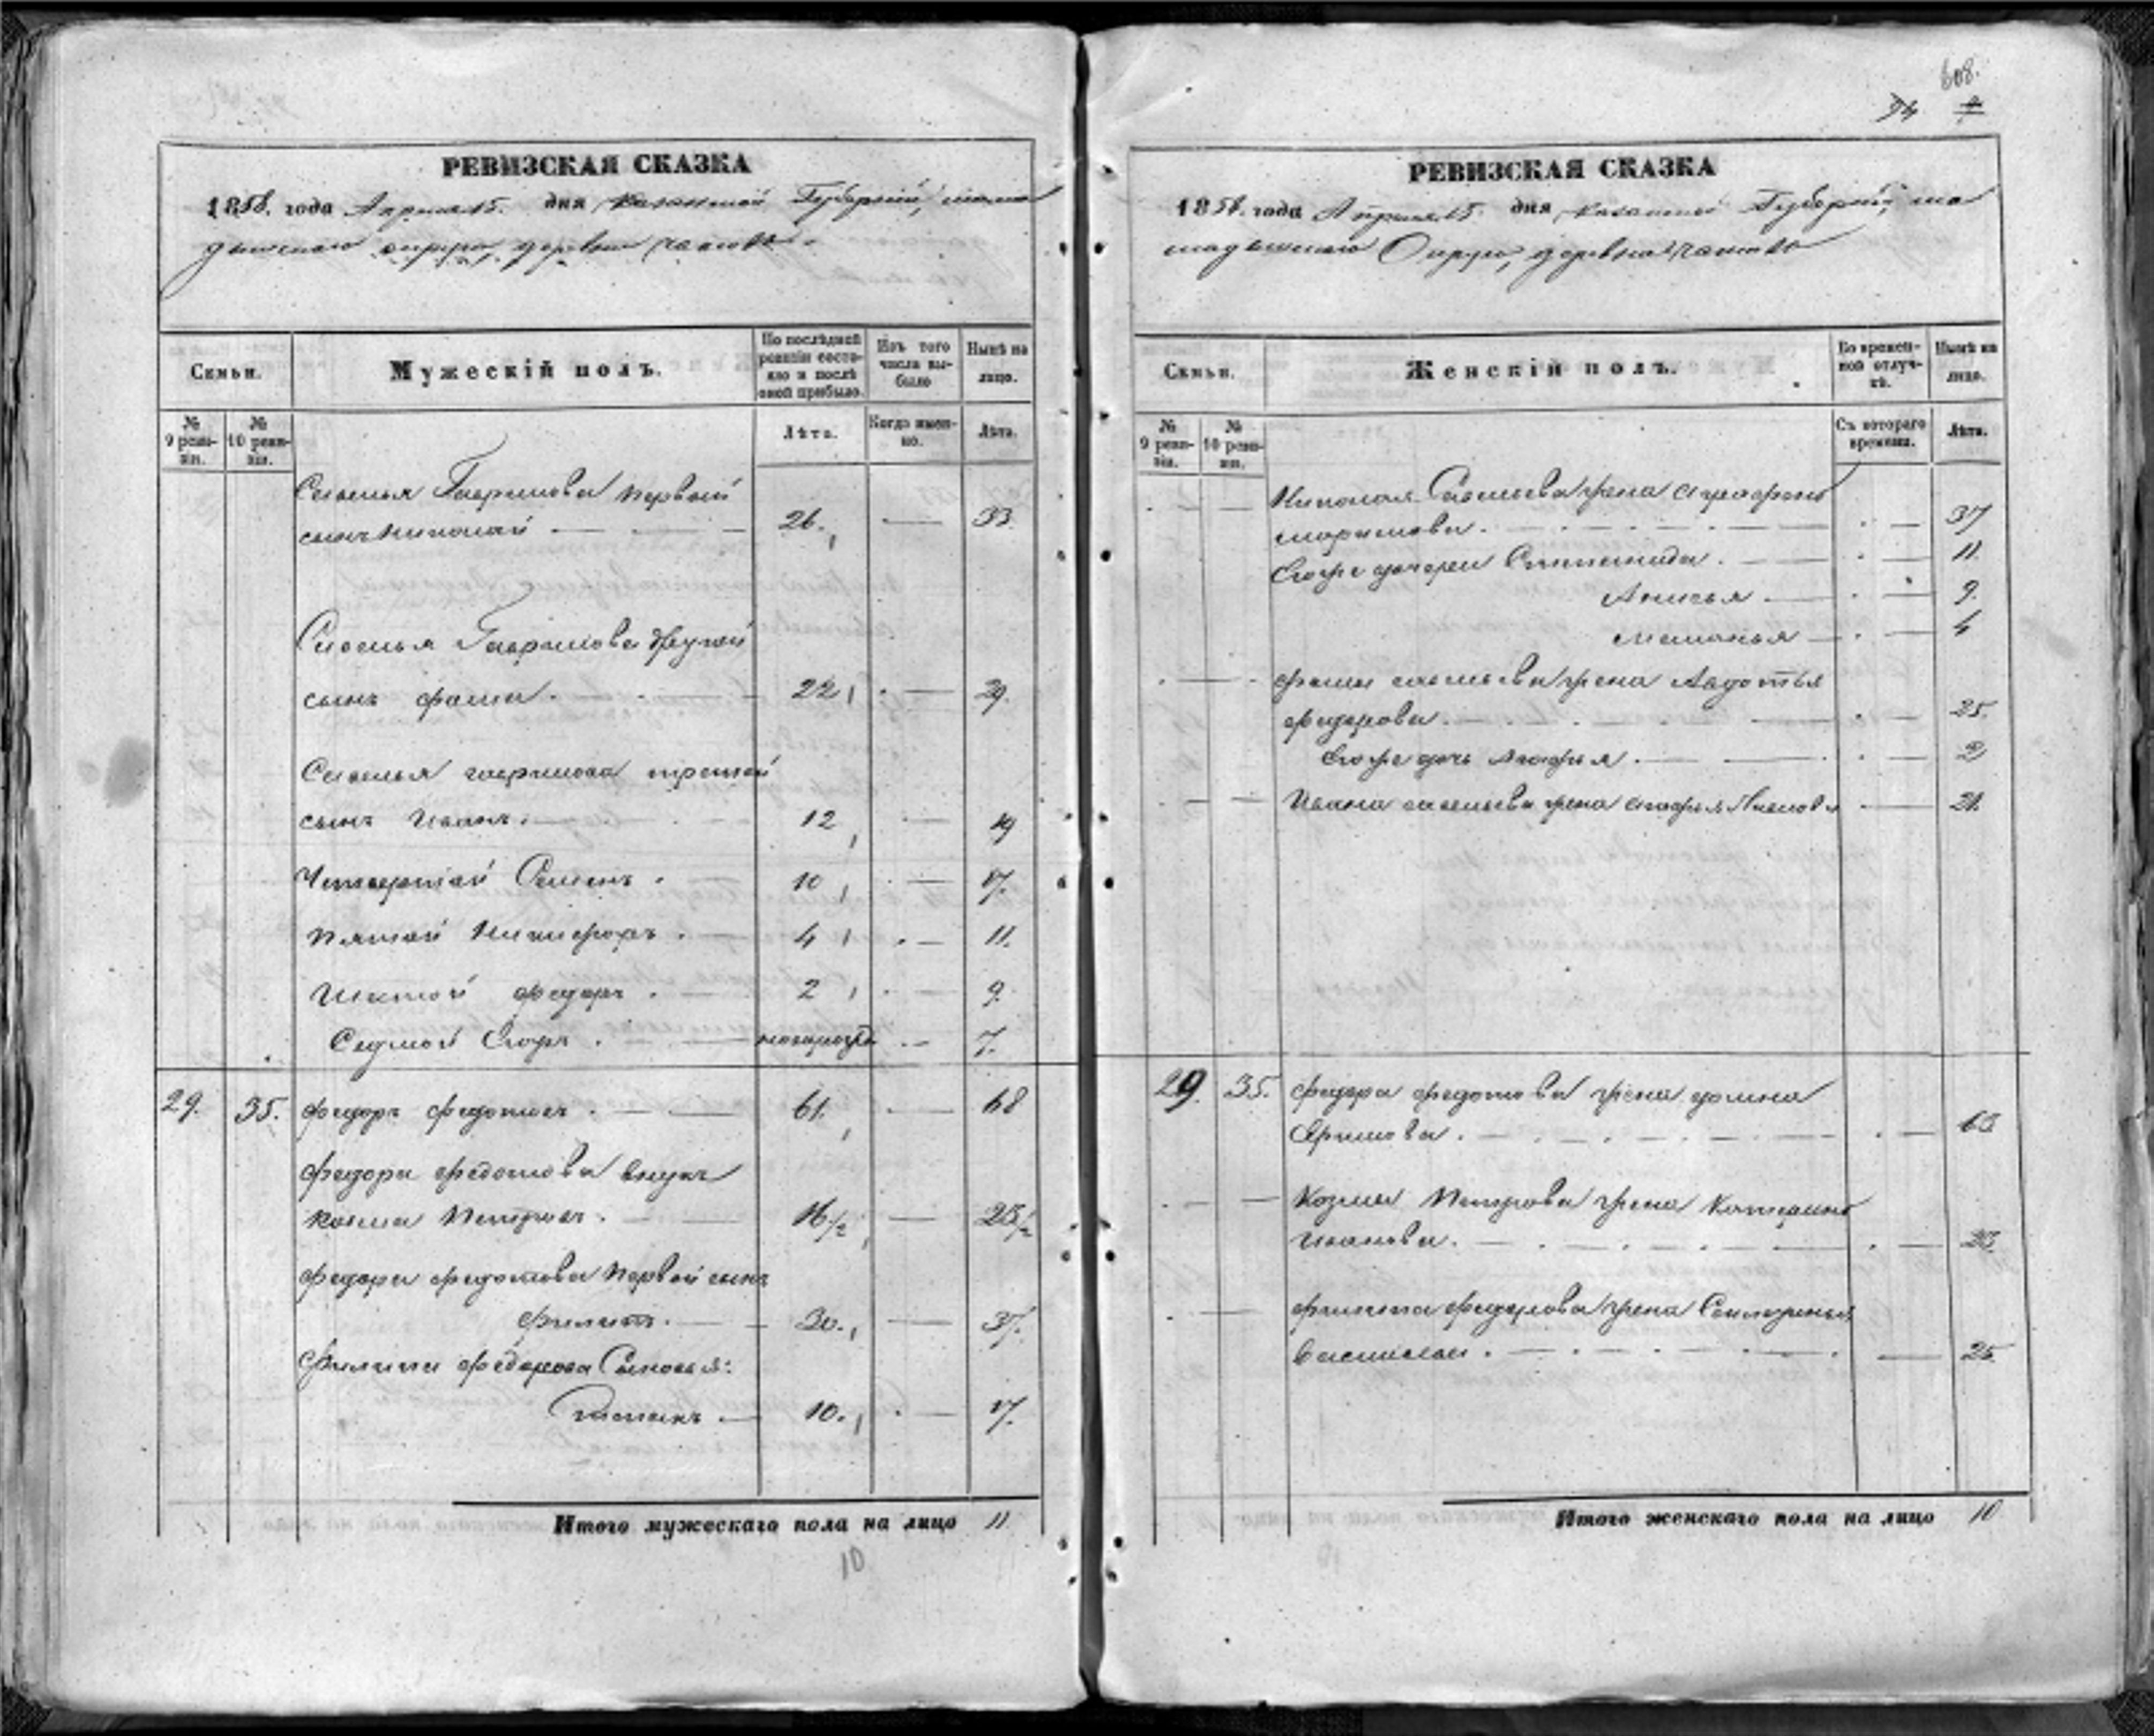 РЕВИЗСКАЯ СКАЗКА
1858. года Апреля 15. дня Казанской Губернии, мама
дышскаго округа, деревни
Семьи.
Мужескій полъ.
По послѣдней ревизіи состояло и послѣ оной прибыло.
Изъ того числа выбыло
Нынѣ на лицо.
№ 9 ревизіи.
№ 10 ревизіи.
Лѣта.
Когда именно.
Лѣта.
Савелья Гаврилова первой
сынъ Николай 26. 33.
Савелья Гаврилова другой
сынъ фома. 22 29.
Савелья гаврилова третей
сынъ Иванъ. 12 19
Четвертой Семенъ. 10 17.
Пятой Никифоръ. 4 11.
Шестой федоръ. 2 9.
Седмой Егоръ. новорожд. 7.
29. 35. федоръ федотовъ. 61. 68
федора федотова внукъ
Козма Петровъ. 16/2 23/2
федора федотова первой сынъ
филипъ. 30. 37.
Филипа федорова Сыновья:
10. 17.
Итого мужескаго пола на лицо 11
10
608.
94
РЕВИЗСКАЯ СКАЗКА
1858. года Апреля 15. дня казанской Губернии, ма
мадышскаго Округа, деревни
Семьи.
Женскій полъ.
Во временной отлучкѣ.
Нынѣ на лицо.
№ 9 ревизіи.
№ 10 ревизіи.
Съ котораго времени.
Лѣта.
Николая Савельева жена
37
Егоже дочери 11.
Анисья 9.
Меланья 4
фомы савельева жена Авдотья
федорова. 25.
Егоже дочь 2
Ивана савельева жена 21.
29. 35. федора федотова жена домна
63
Козмы Петрова жена Катерина
Иванова. 23.
филипа федорова жена
25.
Итого женскаго пола на лицо 10